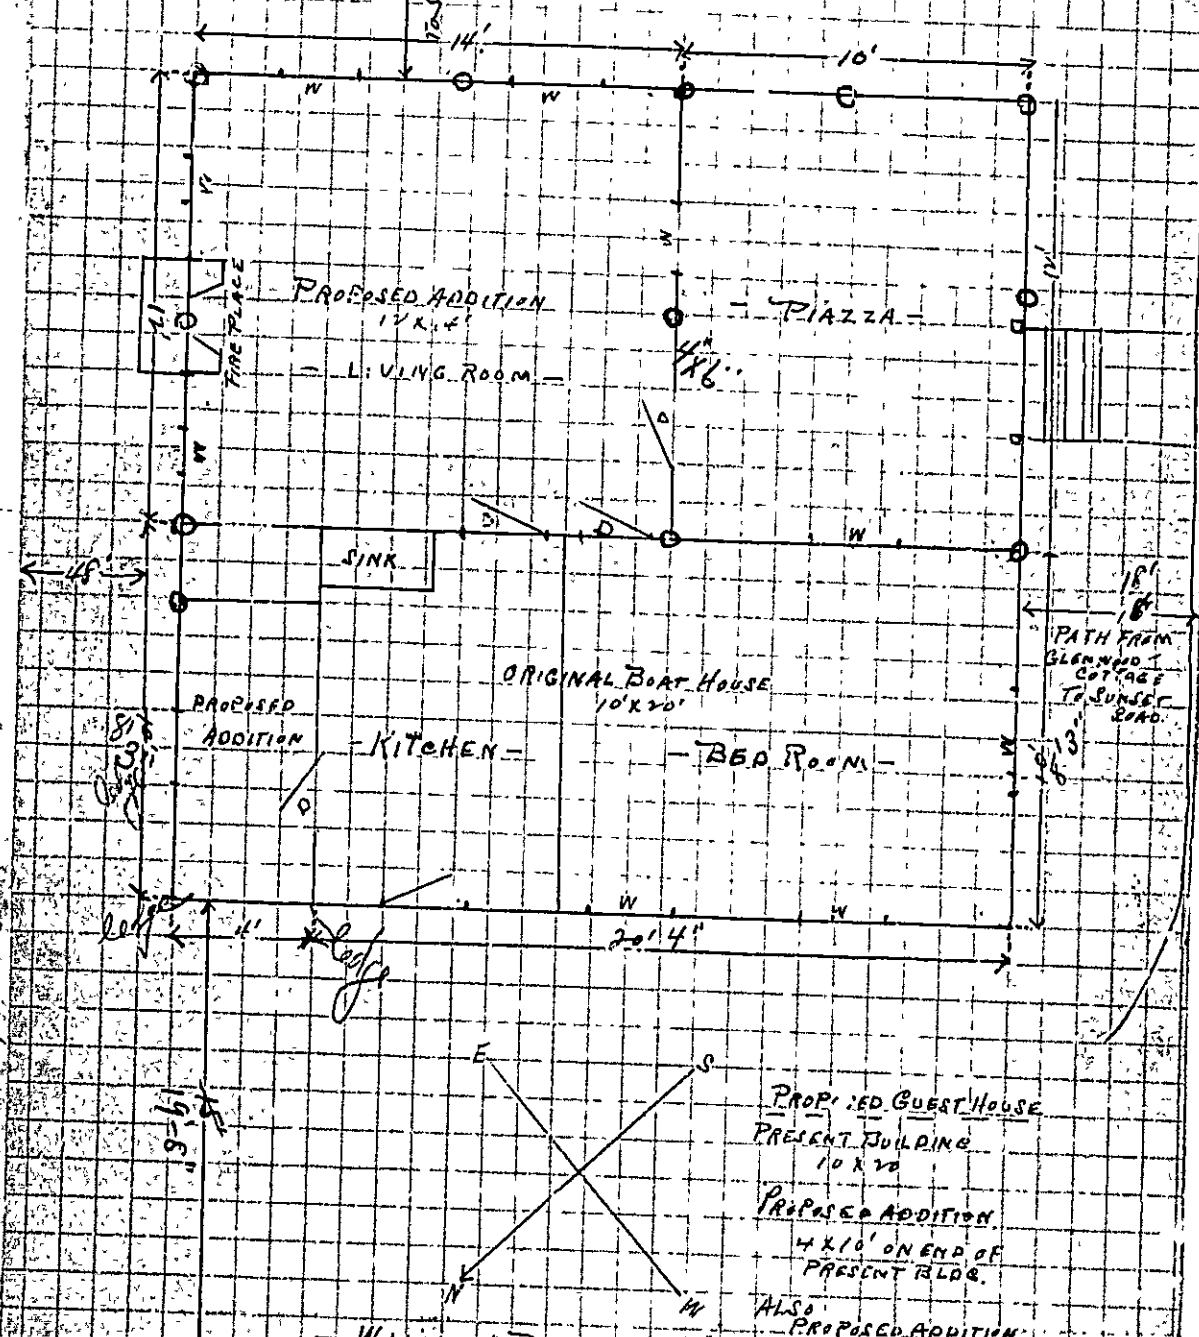 14'
10'
W
W
W
W
FIREPLACE
PROPOSED ADDITION
12' X 14'
- LIVING ROOM -
- PIAZZA -
12'
4" X 6"
D
W
D
D
W
SINK
48'
18'
PATH FROM
GLENWOOD
COTTAGE
TO SUNSET
ROAD
ORIGINAL BOAT HOUSE
10' X 20'
PROPOSED
ADDITION
- KITCHEN -
- BED ROOM -
W
D
W
W
ledge
4'
ledge
20' 4"
19'-8"
E
S
N
W
PROPOSED GUEST HOUSE
PRESENT BUILDING
10 X 20
PROPOSED ADDITION.
4 X 10' ON END OF
PRESENT BLDG.
ALSO
PROPOSED ADDITION